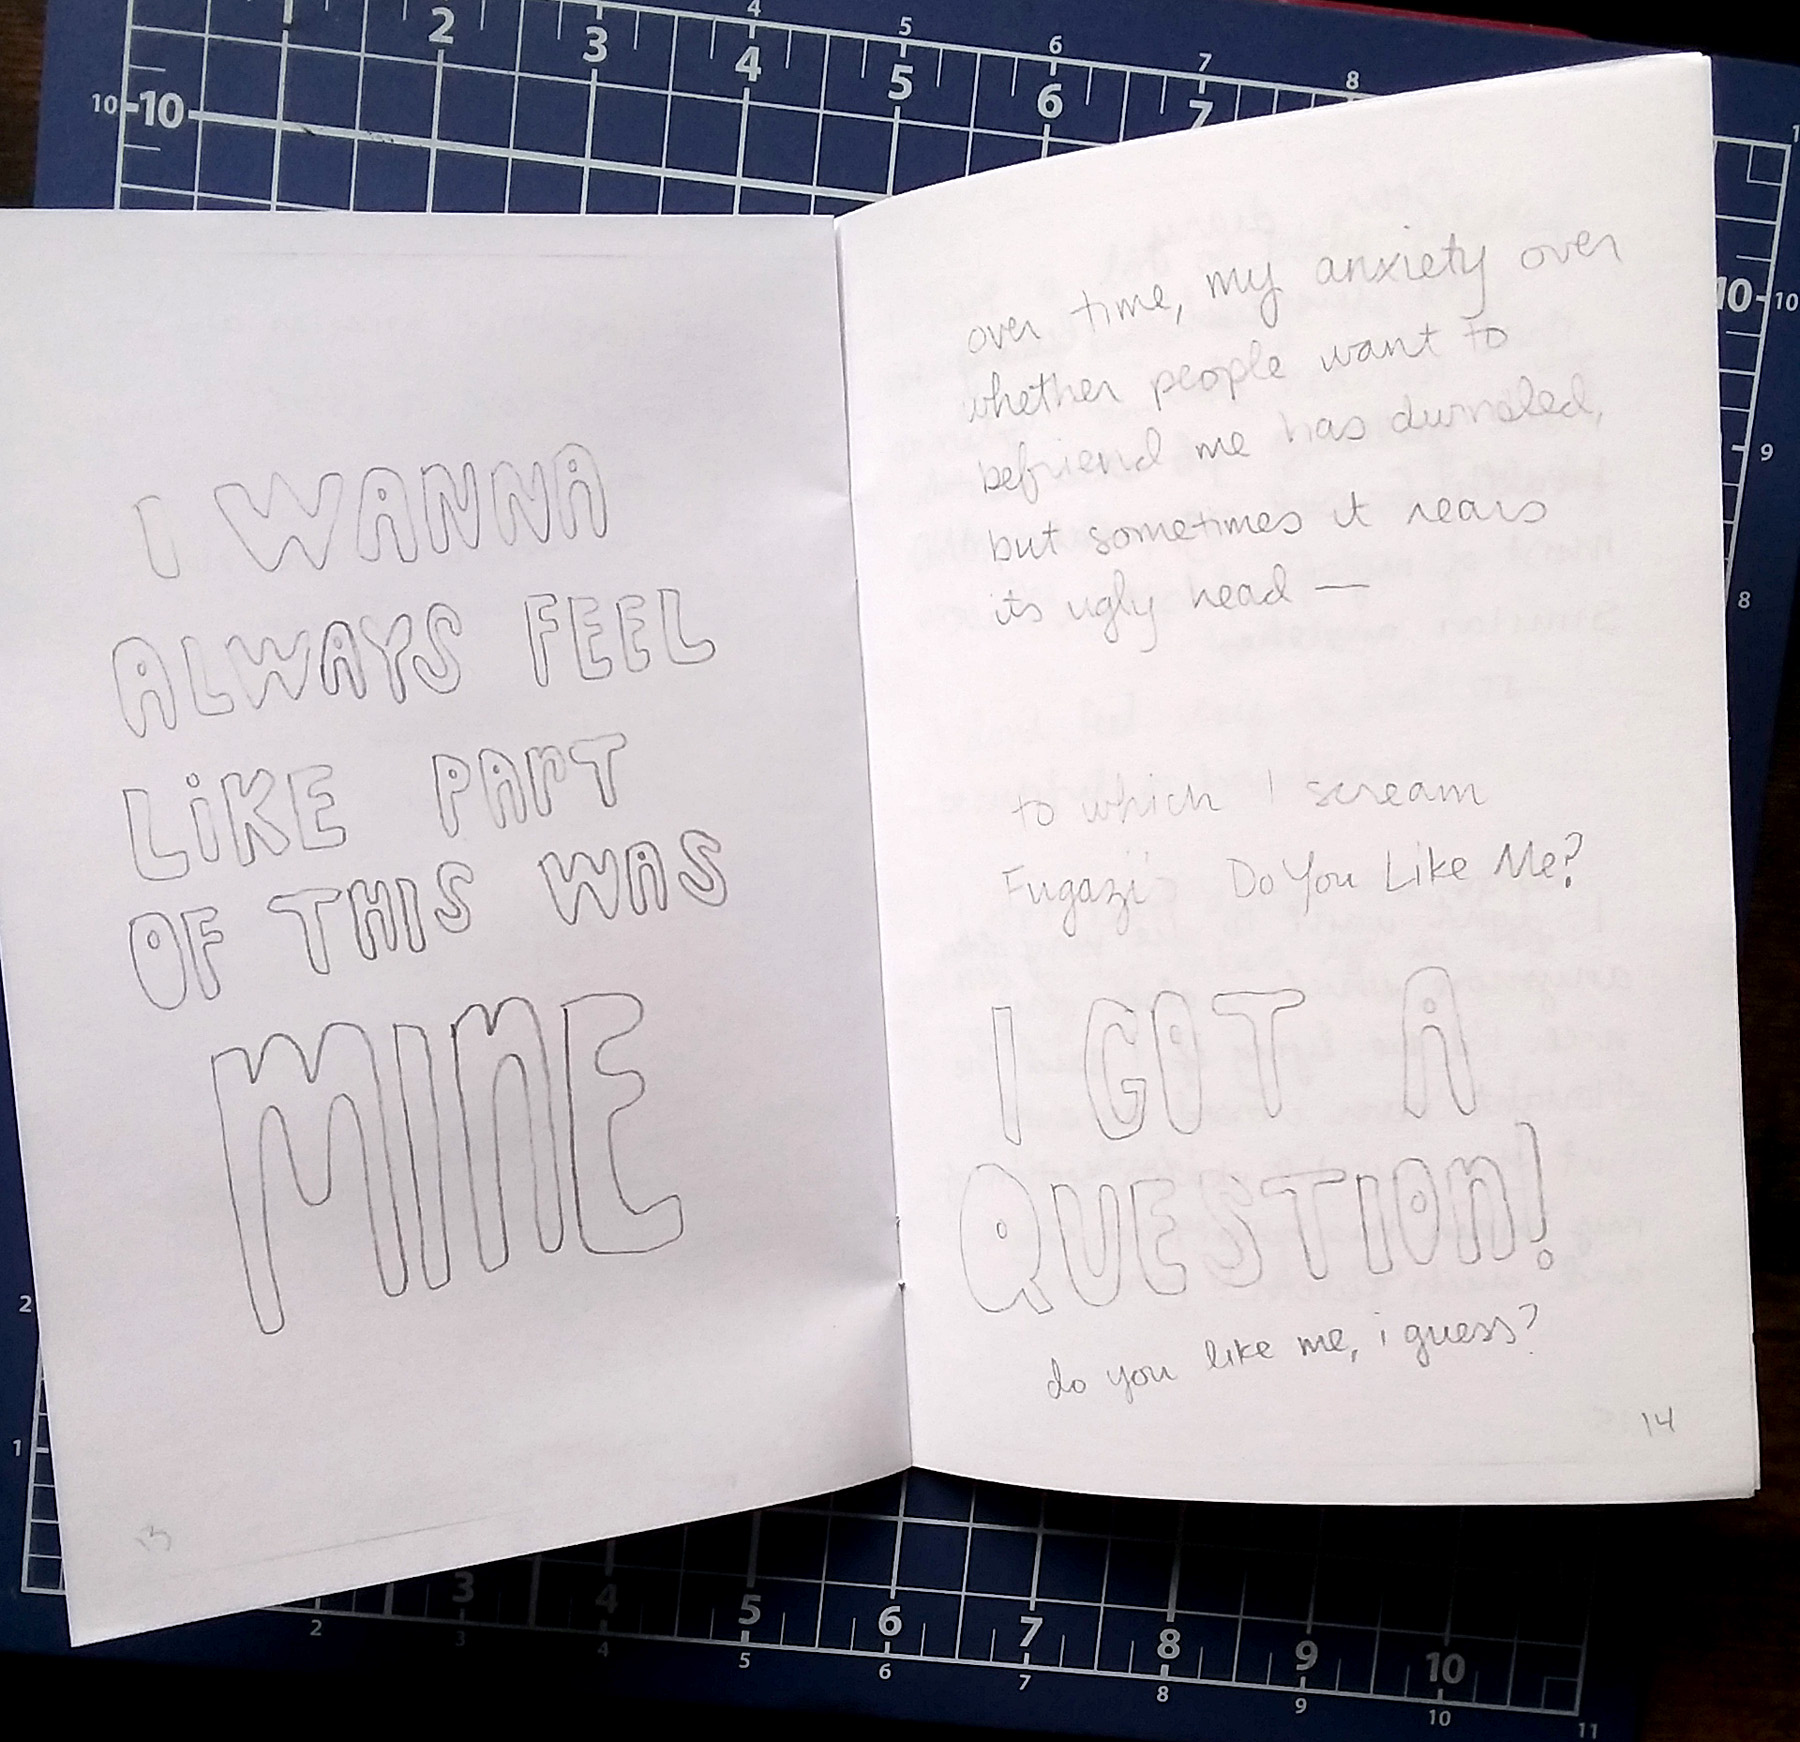 I WANNA
ALWAYS FEEL
LiKE PART
OF THIS WAS
MINE
13
over time, my anxiety over
whether people want to
befriend me has dwindled,
but sometimes it rears
its ugly head —
to which I scream
Fugazi's Do You Like Me?
I GOT A
QUESTION!
do you like me, i guess?
14
1 2 3 4 5 6 7
4 5 6 7 8
10 10
10 10
9
8
2
1
3 4 5 6 7 8 9 10
2 3 4 5 6 7 8 9 10 11